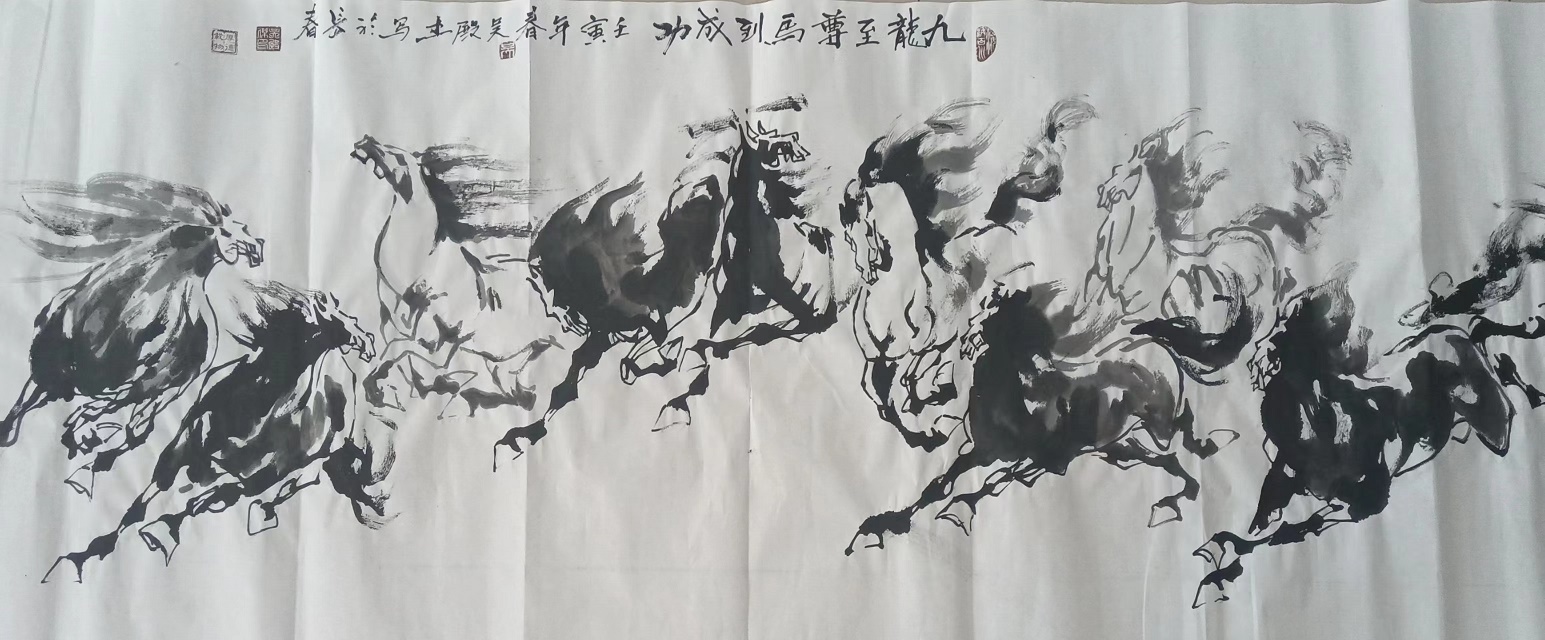 九龍至尊马到成功 壬寅年春吴殿士写於长春